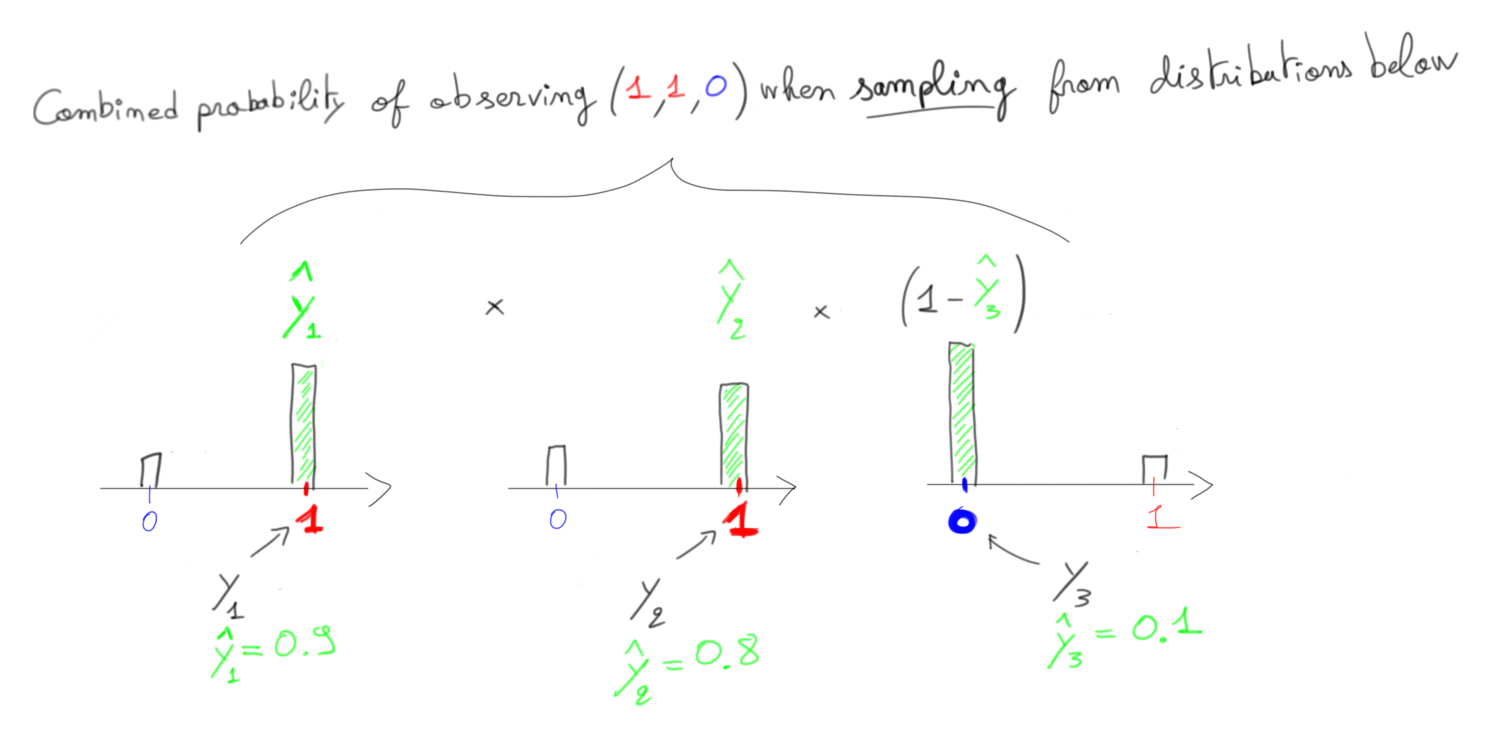 Combined probability of observing (1,1,0) when sampling from distributions below
ŷ₁ × ŷ₂ × (1-ŷ₃)
0 1 0 1 0 1
y₁ y₂ y₃
ŷ₁ = 0.9 ŷ₂ = 0.8 ŷ₃ = 0.1